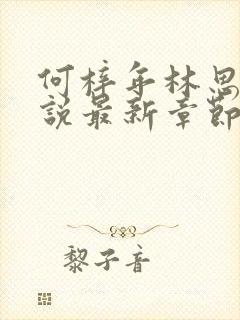 何梓年林思
說最新章節
黎子音